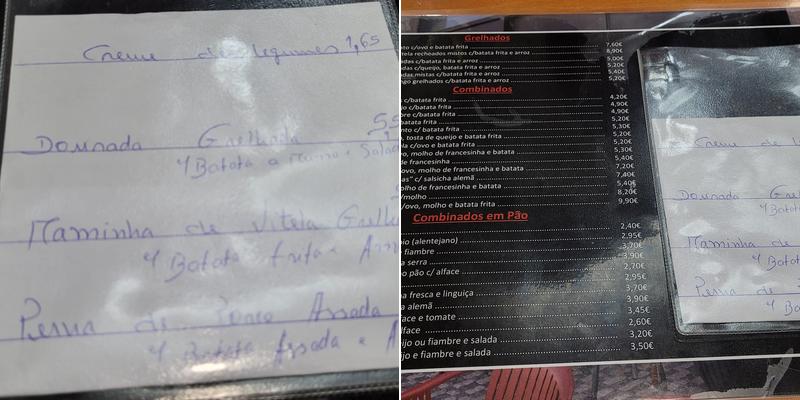 Creme de legumes 1,65
Dourada Grelhada
c/ Batata a murro e Salada
Maminha de Vitela Grelh
c/ Batata frita e Arr
Perna de Porco Assada
c/ Batata Assada e A
Grelhados
c/ovo e batata frita 7,60€
tela recheados mistos c/batata frita e arroz 8,90€
adas c/batata frita e arroz 5,00€
adas c/queijo, batata frita e arroz 5,20€
adas mistas c/batata frita e arroz 5,40€
ngo grelhados c/batata frita e arroz 5,20€
Combinados
s c/batata frita 4,20€
o c/batata frita 4,90€
bre c/batata frita 4,90€
batata frita 5,20€
nto c/ batata frita 5,30€
, tosta de queijo e batata frita 5,20€
la c/ovo e batata frita 5,20€
o, molho de francesinha e batata 5,30€
de francesinha 5,40€
vo, molho de francesinha e batata 7,20€
as" c/ salsicha alemã 7,40€
olho de francesinha e batata 5,40€
/molho 8,20€
/ovo, molho e batata frita 9,90€
Combinados em Pão
2,40€
io (alentejano) 2,95€
e fiambre 3,70€
a serra 3,90€
o pão c/ alface 2,70€
2,95€
a fresca e linguiça 3,70€
a alemã 3,90€
face e tomate 3,45€
lface 2,60€
ijo ou fiambre e salada 3,20€
ijo e fiambre e salada 3,50€
Creme de l
Dourada Gre
c/ Bata
Maminha de
c/ Bat
Perna de
c/ B